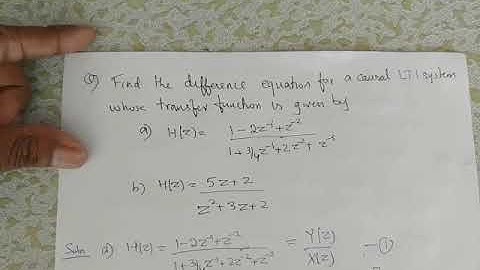 Q) Find the difference equation for a causal LTI system
whose transfer function is given by
a) H(z) = (1 - 2z⁻¹ + z⁻²) / (1 + 3/4 z⁻¹ + 2z⁻² + z⁻³)
b) H(z) = (5z + 2) / (z² + 3z + 2)
Soln a) H(z) = (1 - 2z⁻¹ + z⁻²) / (1 + 3/4 z⁻¹ + 2z⁻² + z⁻³) = Y(z) / X(z) —①